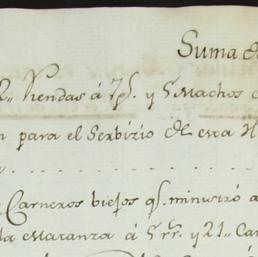 Suma de
2,, Riendas á 7 p.s y 5 Machos
para el Serbizio de esta H
Carneros biejos q.e ministró a
la Matanza á 5 rr.s y 21,, Car